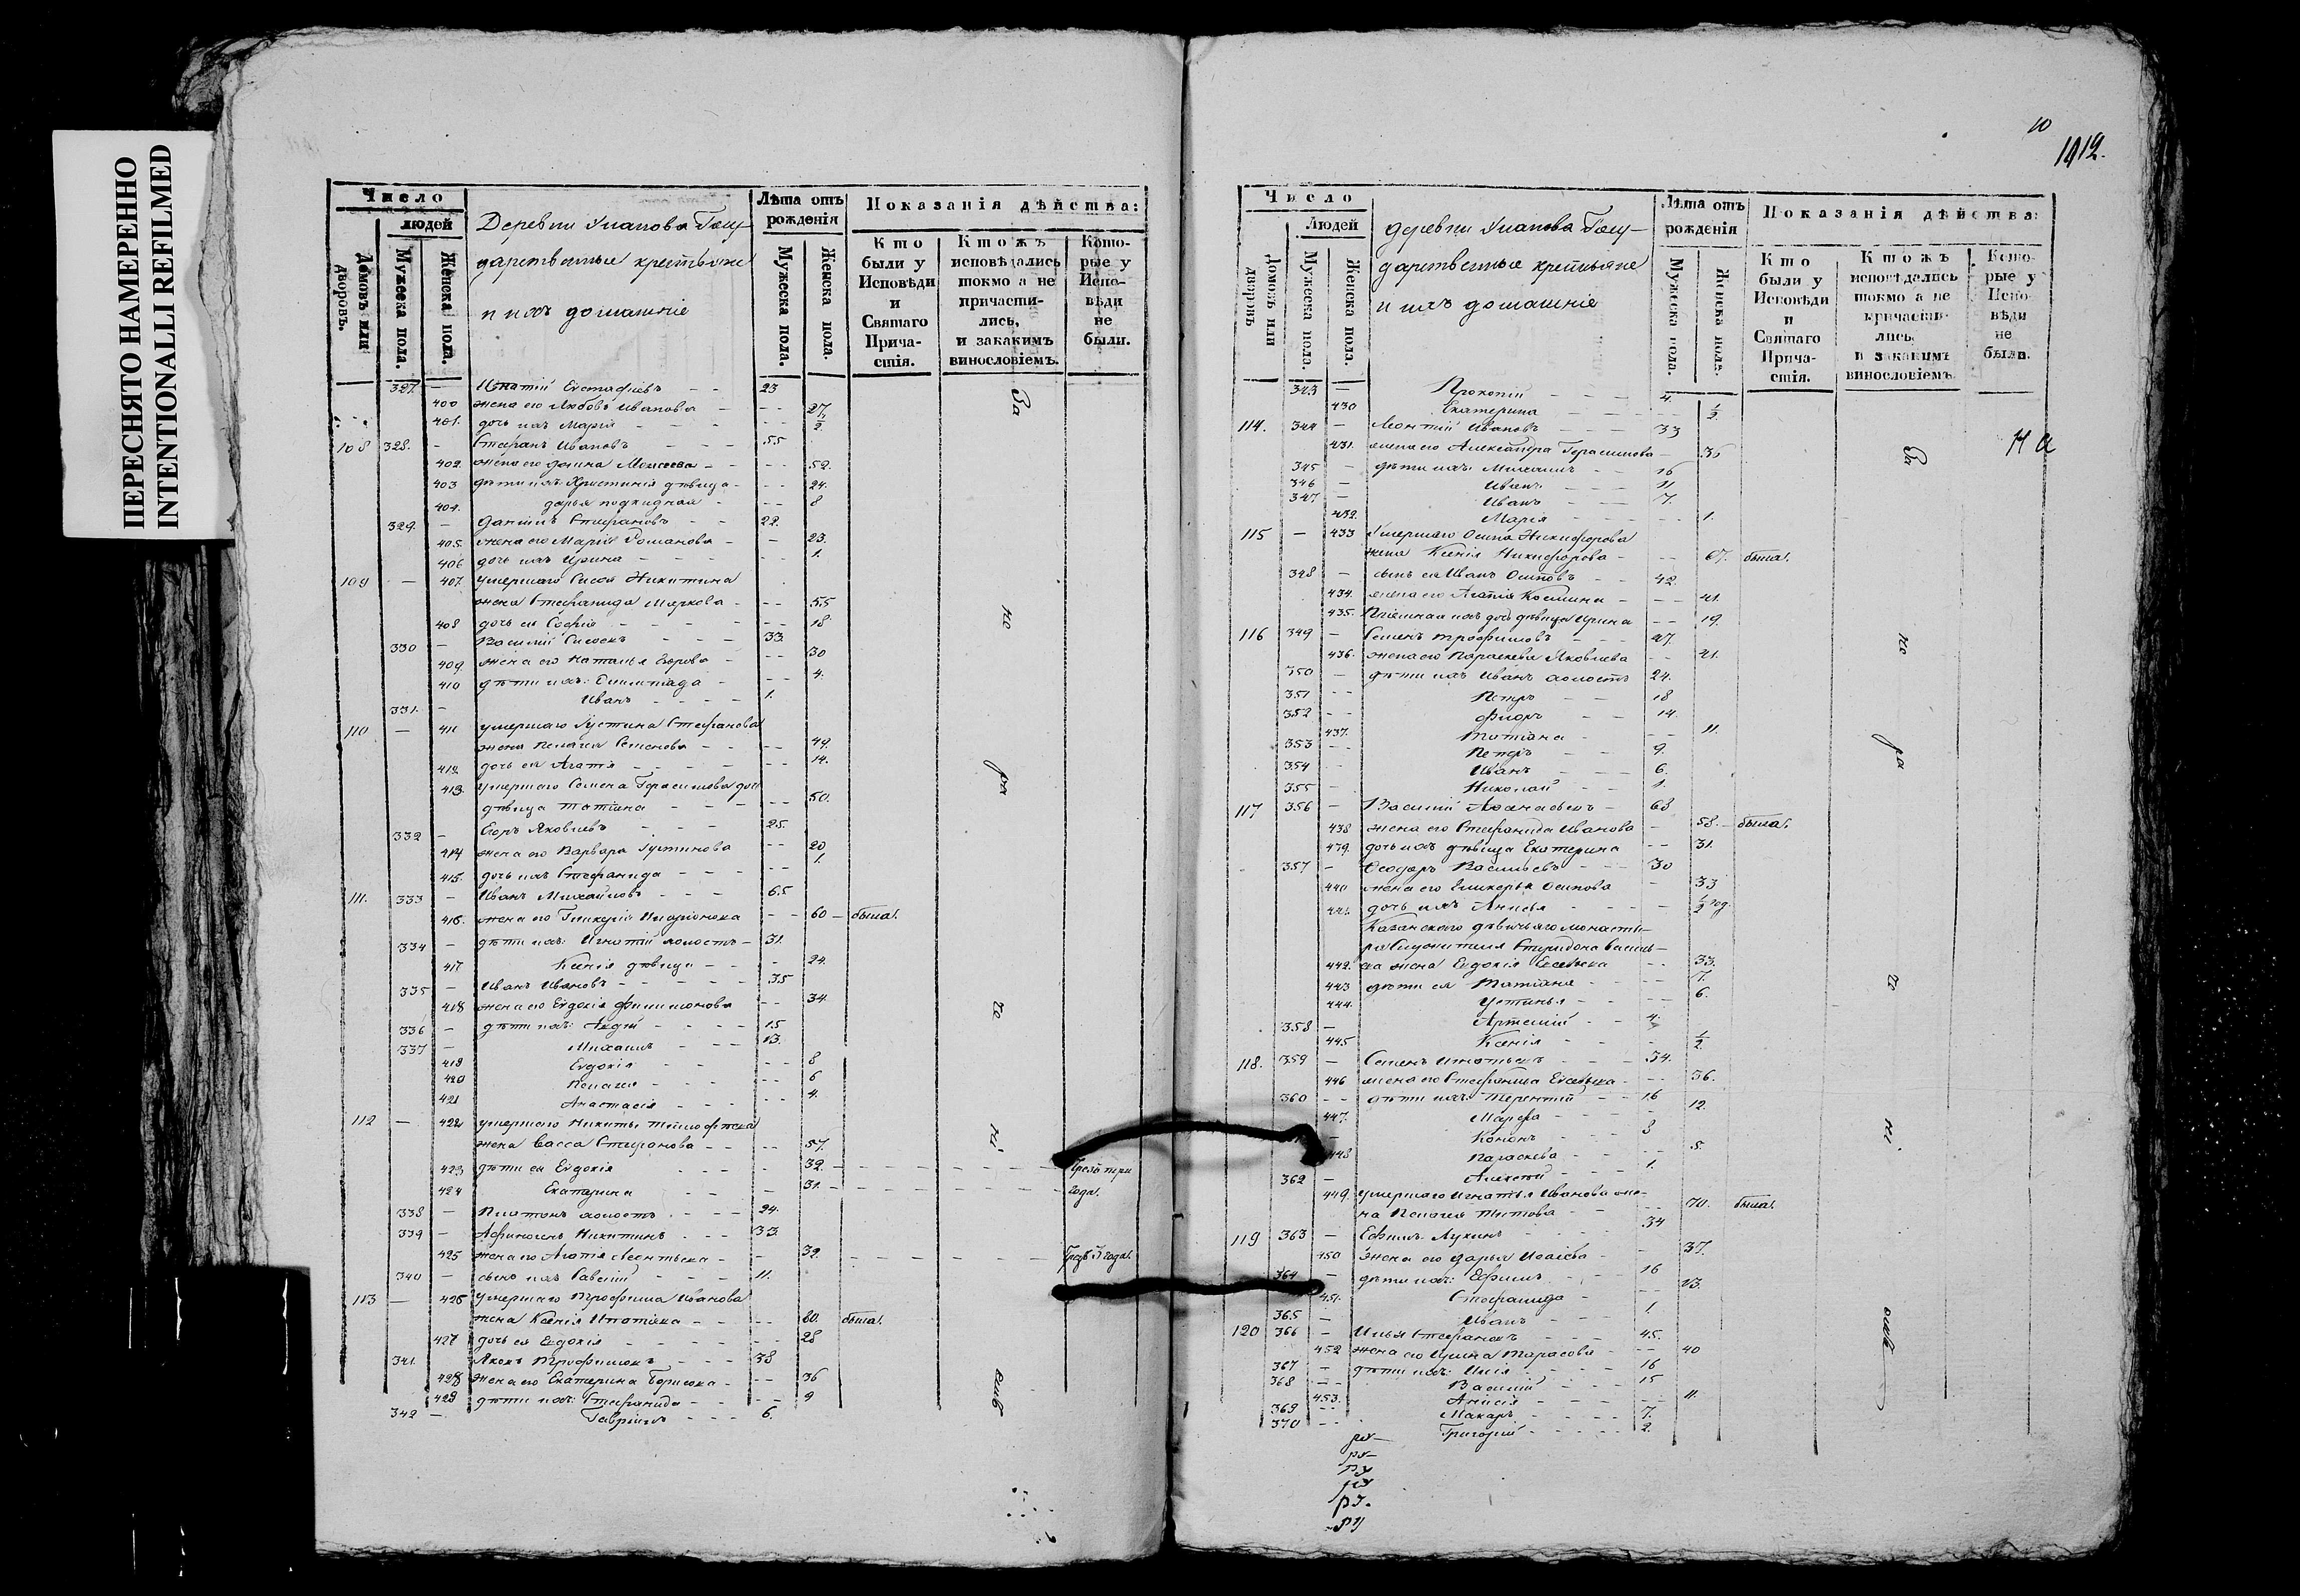 ПЕРЕСНЯТО НАМЕРЕННО
INTENTIONALLI REFILMED
Число
людей
Домовъ или дворовъ.
Мужеска пола.
Женска пола.
Деревни
дарственные крестьяне
и ихъ домашніе
Лѣта отъ рожденія
Мужеска пола.
Женска пола.
Показанія дѣйства:
Кто были у Исповѣди и Святаго Причастія.
Ктожъ исповѣдались токмо а не причастились, и закакимъ винословіемъ.
Которые у Исповѣди не были.
327. — Игнатій Евстафіевъ - - 23
400 жена его Любовь Иванова - - - 27.
401. дочь ихъ Марія - - - ½
108 328. - Стефанъ Ивановъ - - - 55
402. жена его Моисеева - - - 52.
403 дѣти ихъ: Христинія дѣвица - - - 24.
404. Дарья подкидная - - - 8
329. - Даніилъ Стефановъ - - 22.
405. жена его Марія Романова - - 23.
406 дочь ихъ Ирина - - - 1.
109 — 407. умершаго Сисоя Никитина
жена Стефанида Маркова - - - 55
408 дочь ея Софія - - - 18
330 - Василій Сисоевъ - - - 33.
409 жена его Наталья Егорова - - - 30
410 дѣти ихъ: Олимпіада - - - 4.
331. - Иванъ - - - 1.
110 — 411 умершаго Густина Стефанова
жена Пелагея Семенова - - - 49.
412. дочь ея Агафія - - - 14.
413. умершаго Семена Герасимова дочь
дѣвица Татіана - - - 50.
332 - Егоръ Яковлевъ - - - 25.
414 жена его Варвара Густинова - - 20
415. дочь ихъ Стефанида - - - 1.
111. 333 - Иванъ Михайловъ - - - 65
416. жена его Гликерія Иларіонова - - 60 - была.
334 - дѣти ихъ: Игнатій холостъ - 31.
417 Ксенія дѣвица - - - 24.
335 - Иванъ Ивановъ - - - 35
418 жена его Евдокія Филимонова - - 34.
336 - дѣти ихъ: - - - 15
337 - Михаилъ - - - 13.
419 Евдокія - - - 8
420 Пелагея - - - 6
421 Анастасія - - - 4.
112 — 422 умершаго Никиты Тимофеева
жена Васса Стефанова - - - 57.
423 дѣти ея Евдокія - 32. - Чрезъ три
424 Екатерина - - - 31. - года.
338 - Платонъ холостъ - - - 24.
339 - Афиногенъ Никитинъ - - - 33.
425 жена его Агафія Леонтьева - - 32. - Чрезъ 3 года.
340 - сынъ ихъ Савелій - - - 11.
113 — 426 умершаго Трофима Иванова
жена Ксенія Игнатіева - - - 60. была.
427 дочь ея Евдокія - - - 28
341. Яковъ Трофимовъ - - - 38
428 жена его Екатерина Борисова - - - 36
429 дѣти ихъ: Стефанида - - - 9
342 - Гавріилъ - - - 6.
За
не
ра
че
ні
емъ
10
1412.
Число
Людей
Домовъ или дворовъ
Мужеска пола.
Женска пола.
деревни
дарственные крестьяне
и ихъ домашніе
Лѣта отъ рожденія
Мужеска пола.
Женска пола.
Показанія дѣйства:
Кто были у Исповѣди и Святаго Причастія.
Ктожъ исповѣдались токмо а не причастились, и закакимъ винословіемъ.
Которые у Исповѣди не были.
343 - Прокопій - - - 4.
430 Екатерина - - - ½
114. 344 - Леонтій Ивановъ - - - 33
431. жена его Александра Герасимова - 35
345 - дѣти ихъ: Михаилъ - - 16
346 - Иванъ - - - 11
347 - Иванъ - - - 7.
432. Марія - - - 1.
115 - 433 умершаго Осипа Никифорова
жена Ксенія Никифорова - - - 67. была.
348 - сынъ ея Иванъ Осиповъ - - 42.
434. жена его Агафія Козмина - - - 41.
435. дочь дѣвица Ирина - - 19.
116 349 - Семенъ Трофимовъ - - - 47.
436. жена его Параскева Яковлева - - 41.
350 - дѣти ихъ Иванъ холостъ 24.
351 - - Петръ - - 18
352 - - Флоръ - - 14.
437. Татіана - - - 11.
353 - - Петръ - - 9.
354 - - Иванъ - - - 6.
355 - Николай - - - 1.
117 356 - Василій Афанасьевъ - 68
438 жена его Стефанида Иванова - 58. - была.
439. дочь ихъ дѣвица Екатерина - - 31.
357 - Ѳеодоръ Васильевъ - - 30
440 жена его Гликерья Осипова - 33
441. дочь ихъ Анисья - - - ½ год.
Казанского дѣвичьяго монасты-
ря Спиридона Василь-
442. ева жена Евдокія - - 33.
443 дѣти ея Татіана - - - 7.
444. Устинья - - - 6.
358 - Артемій - - 4.
445 Ксенія - - - ½
118. 359 - Семенъ Игнатьевъ - - - 34.
446 жена его Стефанида - - - 36.
360 - - дѣти ихъ: Терентій - - 16
447. Марфа - - - 12.
Кононъ - - - 8
448 Параскева - - - 5.
362 - Алексѣй - - - 1.
449. умершаго Игнатья Иванова же-
на Пелагея Титова - - - 70. была.
119 363 - Ефимъ Лукинъ - - - 34
450 жена его Дарья - - 37.
364 - дѣти ихъ: Ефимъ - - - 16
451. Стефанида - - - 13.
365 - Иванъ - - - 1.
120 366 - Илья Стефановъ - - - 45.
452 жена его Ирина Тарасова - - - 40
367 - дѣти ихъ: Илія - - - 16
368 - - Василій - - - 15
453. Анисія - - - 11.
369 - - Макаръ - - - 7.
370 - - Григорій - - - 2.
За
не
ра
че
ні
емъ